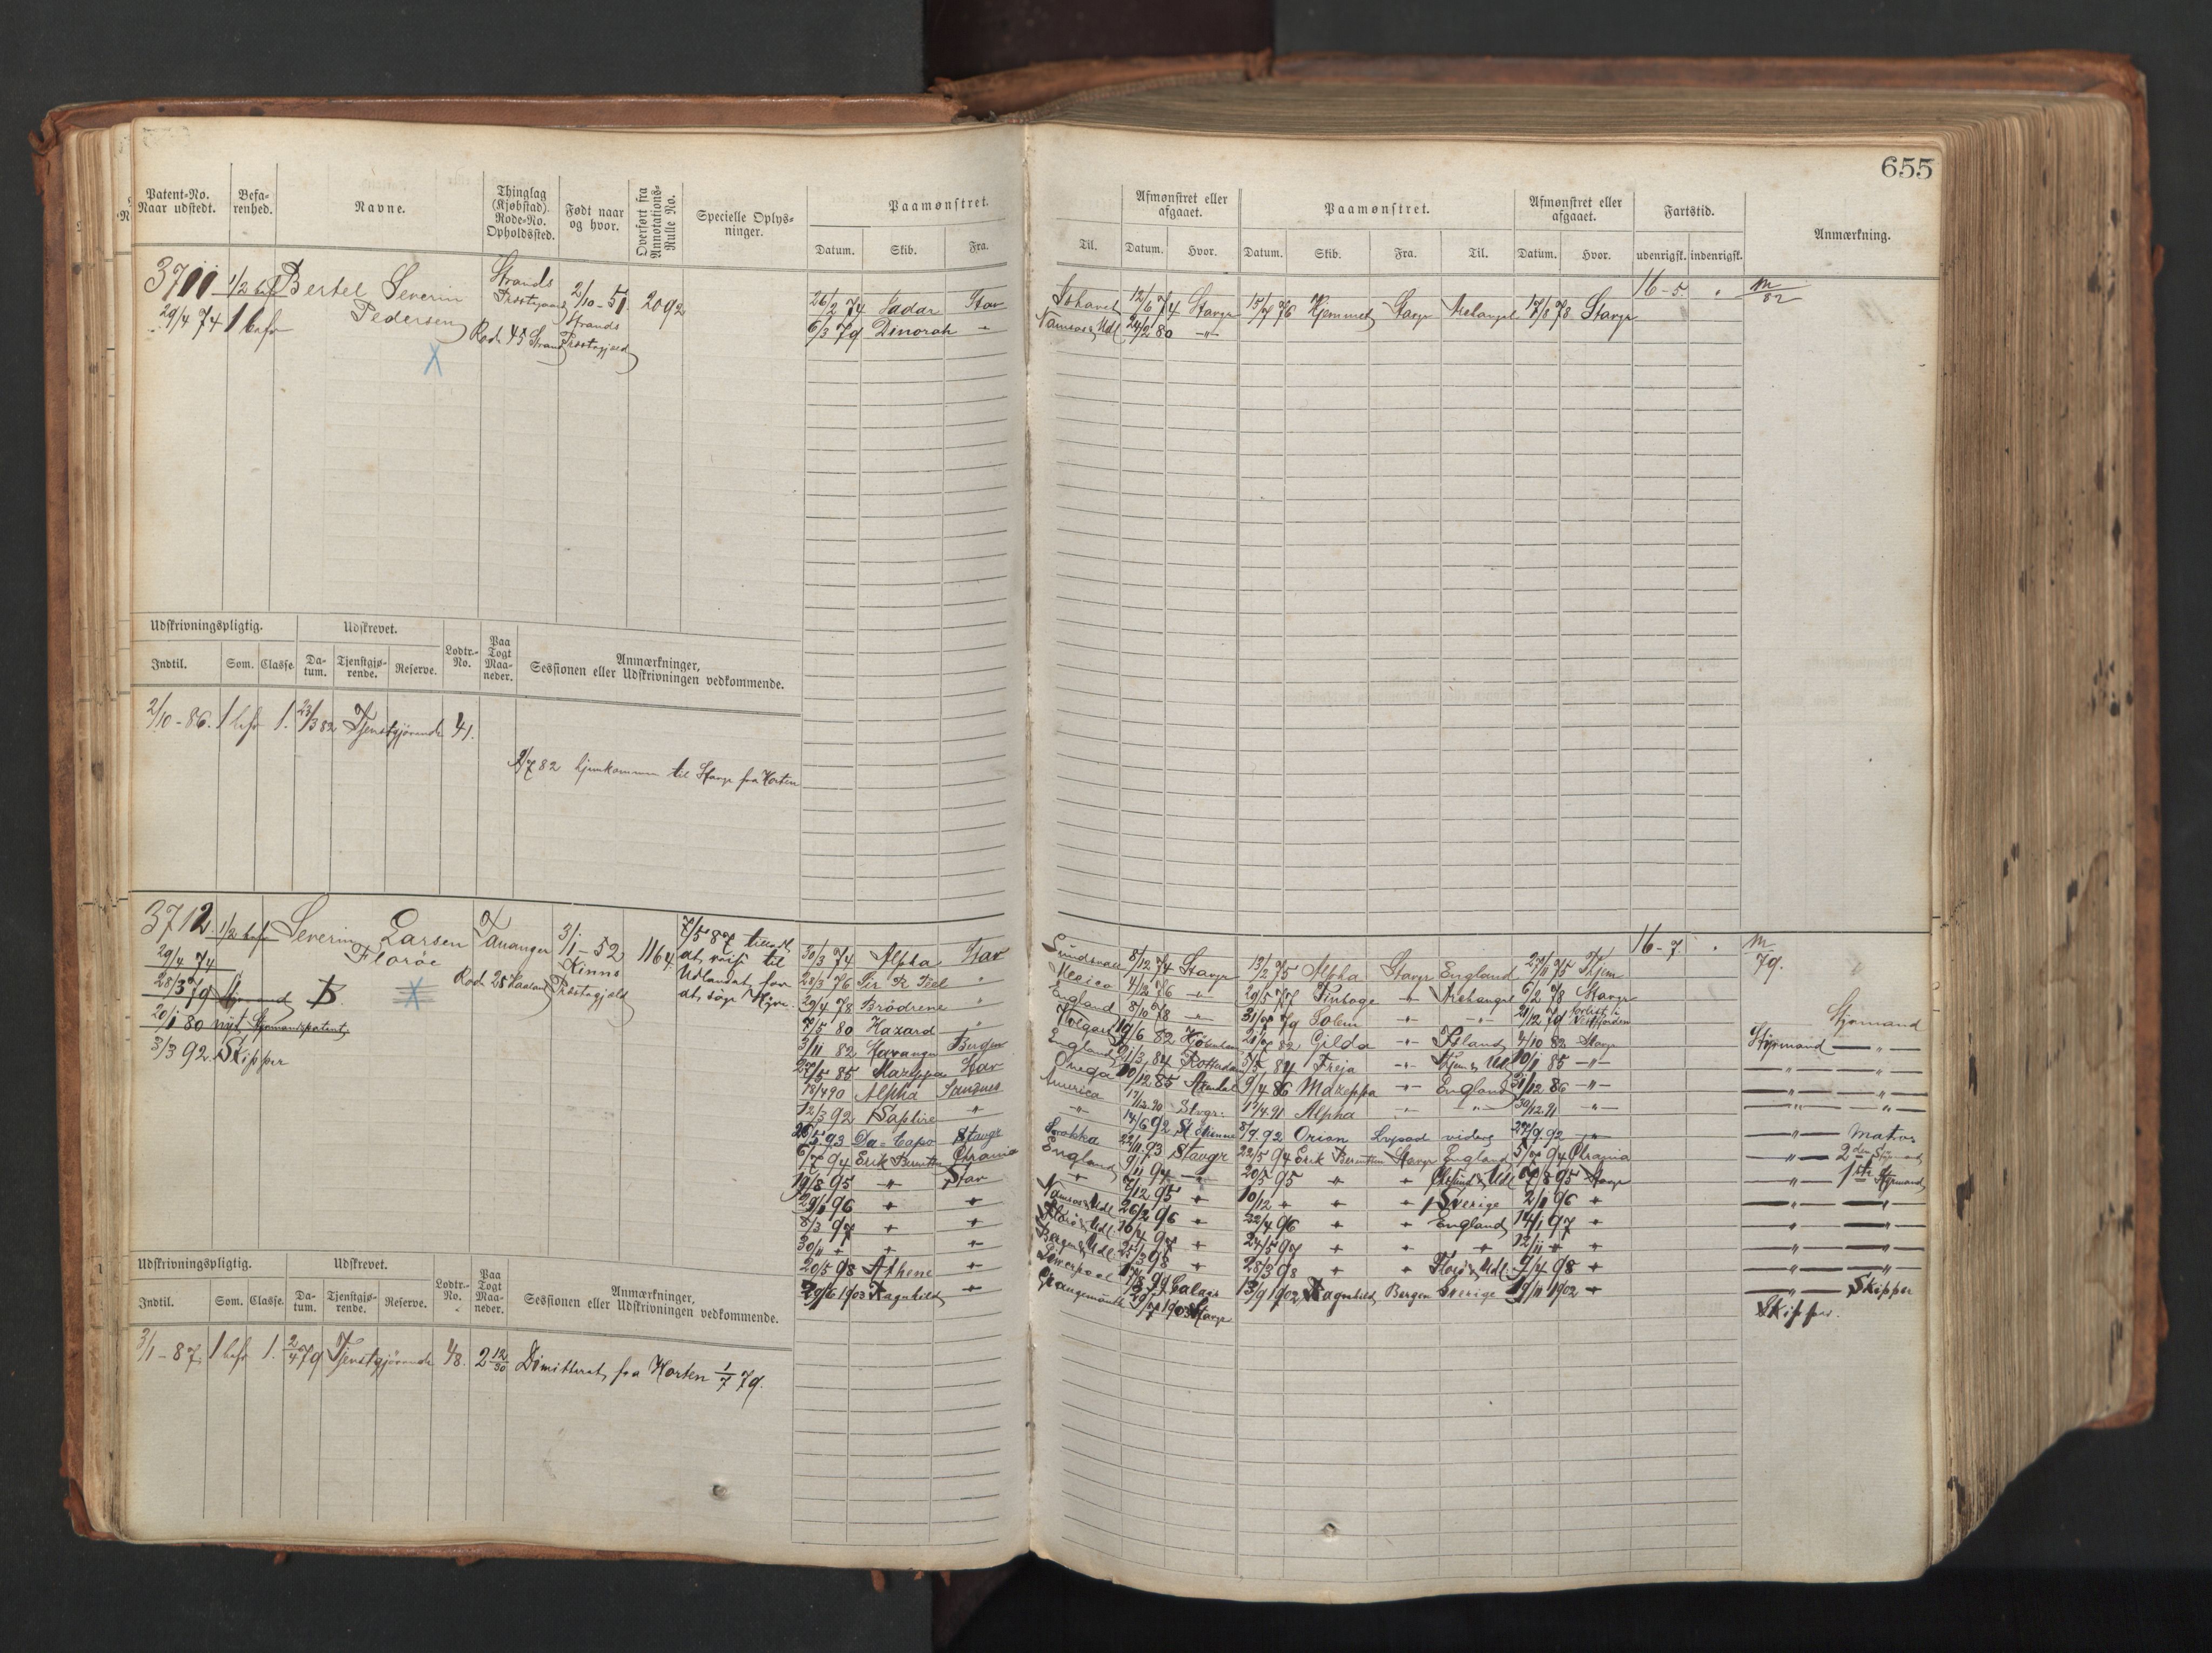 655
Patent-No. Naar udstedt.
Befarenhed.
Navne.
Thinglag (Kjøbstad). Rode-No. Opholdssted.
Født naar og hvor.
Overført fra Annotations-Rulle No.
Specielle Oplysninger.
Paamønstret.
Datum. Skib. Fra.
Til.
Afmønstret eller afgaaet.
Datum. Hvor.
Paamønstret.
Datum. Skib. Fra. Til.
Afmønstret eller afgaaet.
Datum. Hvor.
Fartstid.
udenrigsk. indenrigsk.
Anmærkning.
3711 1/2 bef Bertel Severin Strands 2/10-51 2092
29/4 74 1 befr Pedersen Præstegjeld Strands
Rod. 45 Strand Præstegjeld
26/2 74 Sadar Stav Ishavet 12/6 74 Stavgr 15/7 76 Hjemmet Stavgr Archangel 17/8 78 Stavgr 16-5 " M/82
6/3 79 Dinorah " Namsos & Udl 24/2 80 -"-
Udskrivningspligtig.
Udskrevet.
Lodtr.-No.
Paa Togt Maaneder.
Anmærkninger, Sessionen eller Udskrivningen vedkommende.
Indtil. Som. Classe. Datum. Tjenstgjørende. Reserve.
2/10-86. 1 befr 1. 23/3 82 Tjenstgjørende 41.
2/7 82 hjemkommen til Stavgr fra Horten
3712. 1/2 befr Severin Larsen Tananger 3/1-52 1164
29/4 74 Florøe Kinns
28/3 79 Styrmand B. Rod 25 Præstegjeld
20/1 80 nyt Styrmandspatent
3/3 92 Skipper
7/5 87 tilladt
at reise til
Udlandet for
at søge Hyre.
30/3 74 Alpha Stav Sundsvall 8/12 74 Stavgr 13/2 75 Alpha Stavgr England 27/11 75 Hjem 16-7 " M/79.
28/3 76 Sir R. Peel " Mexico 4/2 76 -"- 29/5 77 Archangel 6/2 78 Stavgr
29/4 78 Brødrene " England 8/10 78 -"- 31/7 79 Solem -"- -"- 21/12 79 forlist i Styrmand
7/5 80 Hazard " 19/6 82 Kjøbenhavn 21/7 82 Gilda -"- Island 4/10 82 Stavgr Styrmand -"-
3/11 82 Bergen England 21/3 84 Rotterdam 5/5 84 Freja -"- 10/1 85 -"- -"- -"-
27/5 85 Mazeppa Stav Onega 10/12 85 Arendal 9/4 86 Mazeppa -"- England 31/12 86 -"- -"- -"-
12/4 90 Alpha Sandnes America 17/12 90 Stvgr: 17/4 91 Alpha -"- -"- 30/12 91 -"- -"- -"-
12/3 92 Saphire " -"- 14/6 92 St. Etienne 8/7 92 Orion videre 27/9 92 -"- -"- Matros
26/5 93 Da-Capo Stavgr 22/11 93 Stavgr 22/5 94 Erik Berentsen Stavgr England 5/7 94 Chrania -"- 2den Styrmand
6/7 94 Erik Berentsen Chrania England 9/11 94 -"- 20/5 95 " " Udl 7/8 95 Stavgr -"- 1ste Styrmand
19/8 95 " Stav " 7/12 95 " 10/12 " " " Sverige 2/1 96 " -"- -"-
29/1 96 " " Namsos & Udl 26/2 96 " 22/4 96 " " England 14/1 97 " -"- -"-
8/3 97 " " Florø & Udl 16/4 97 " 24/5 97 " " " 12/11 " " -"- -"-
30/11 " " " Bergen & Udl 25/3 98 " 28/3 98 " " Florø & Udl 9/4 98 " -"- -"-
20/5 98 Athene " Liverpool 17/8 99 Calais 13/9 1902 Ragnhild Bergen Sverige 19/11 1902 " -"- Skipper
29/6 1903 Ragnhild " Grangemouth 29/7 1903 Stavgr Skipper.
Udskrivningspligtig.
Udskrevet.
Lodtr.-No.
Paa Togt Maaneder.
Anmærkninger, Sessionen eller Udskrivningen vedkommende.
Indtil. Som. Classe. Datum. Tjenstgjørende. Reserve.
3/1-87. 1 befr 1. 2/4 79 Tjenstgjørende 48. 2 12/30 Dimitteret fra Horten 1/7 79.